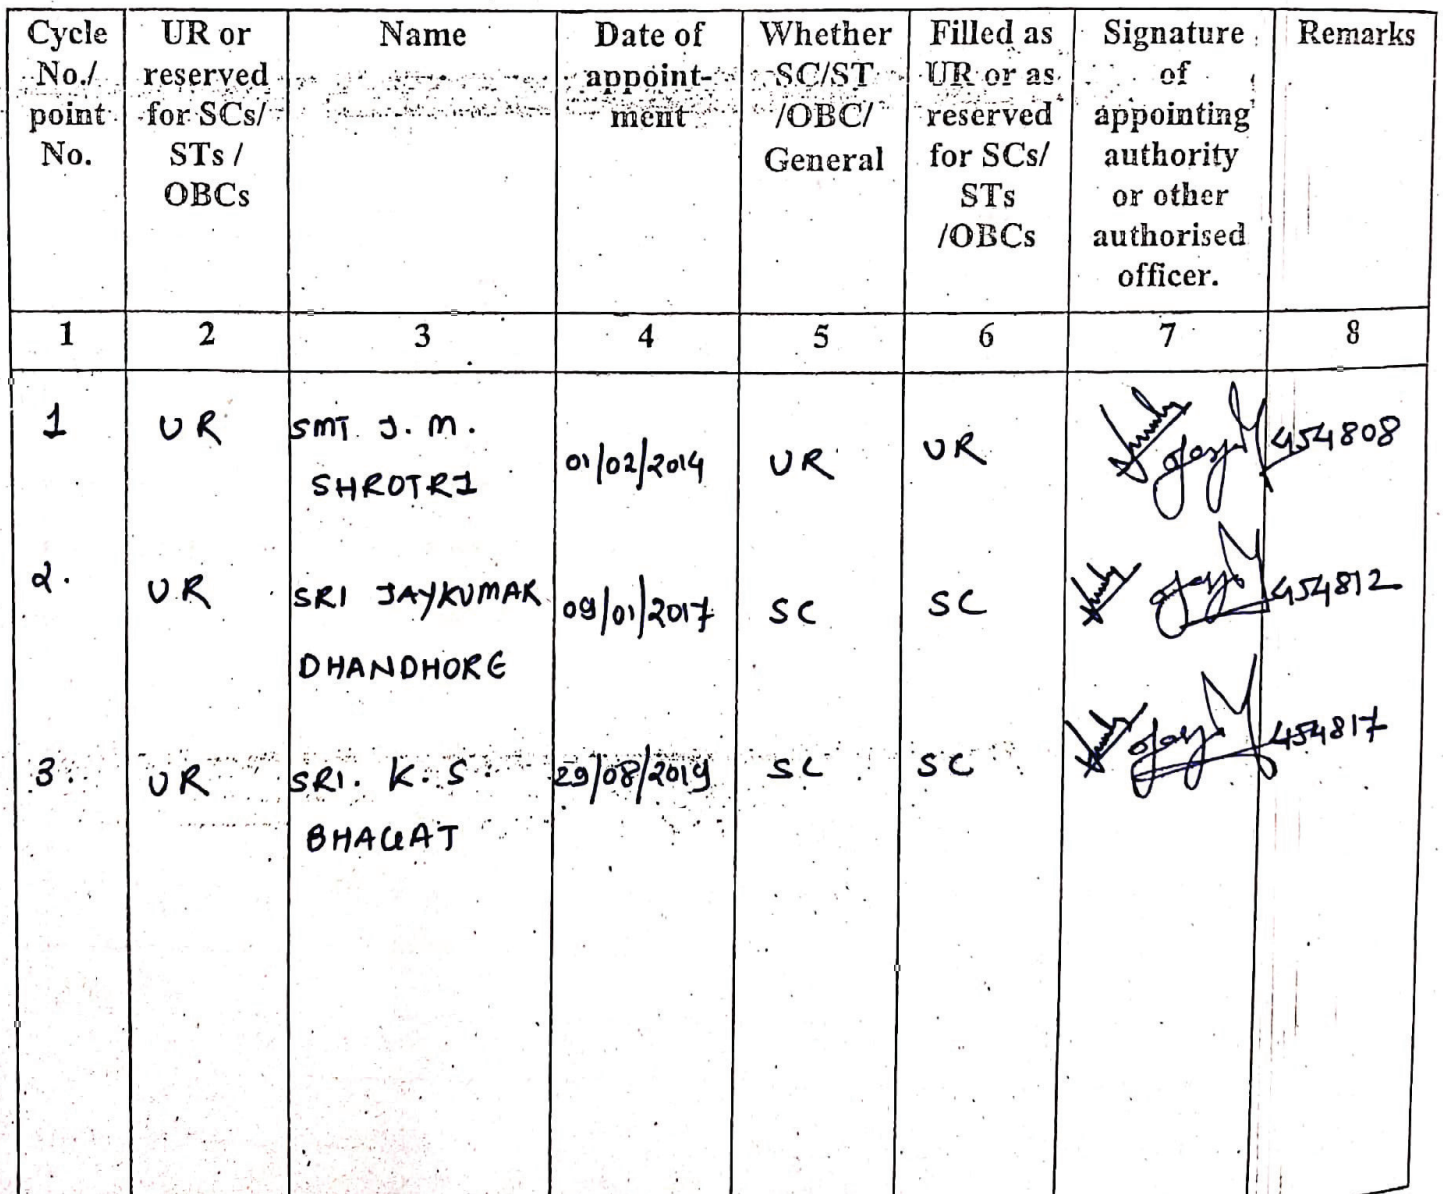 Cycle No./ point No.
UR or reserved for SCs/ STs / OBCs
Name
Date of appoint- ment
Whether SC/ST /OBC/ General
Filled as UR or as reserved for SCs/ STs /OBCs
Signature of appointing authority or other authorised officer.
Remarks
1 2 3 4 5 6 7 8
1 UR SMT. J. M. SHROTRI 01/02/2014 UR UR 454808
2. UR SRI JAYKUMAR DHANDHORE 09/01/2017 SC SC 454812
3. UR SRI. K. S. BHAGAT 29/08/2019 SC SC 454817